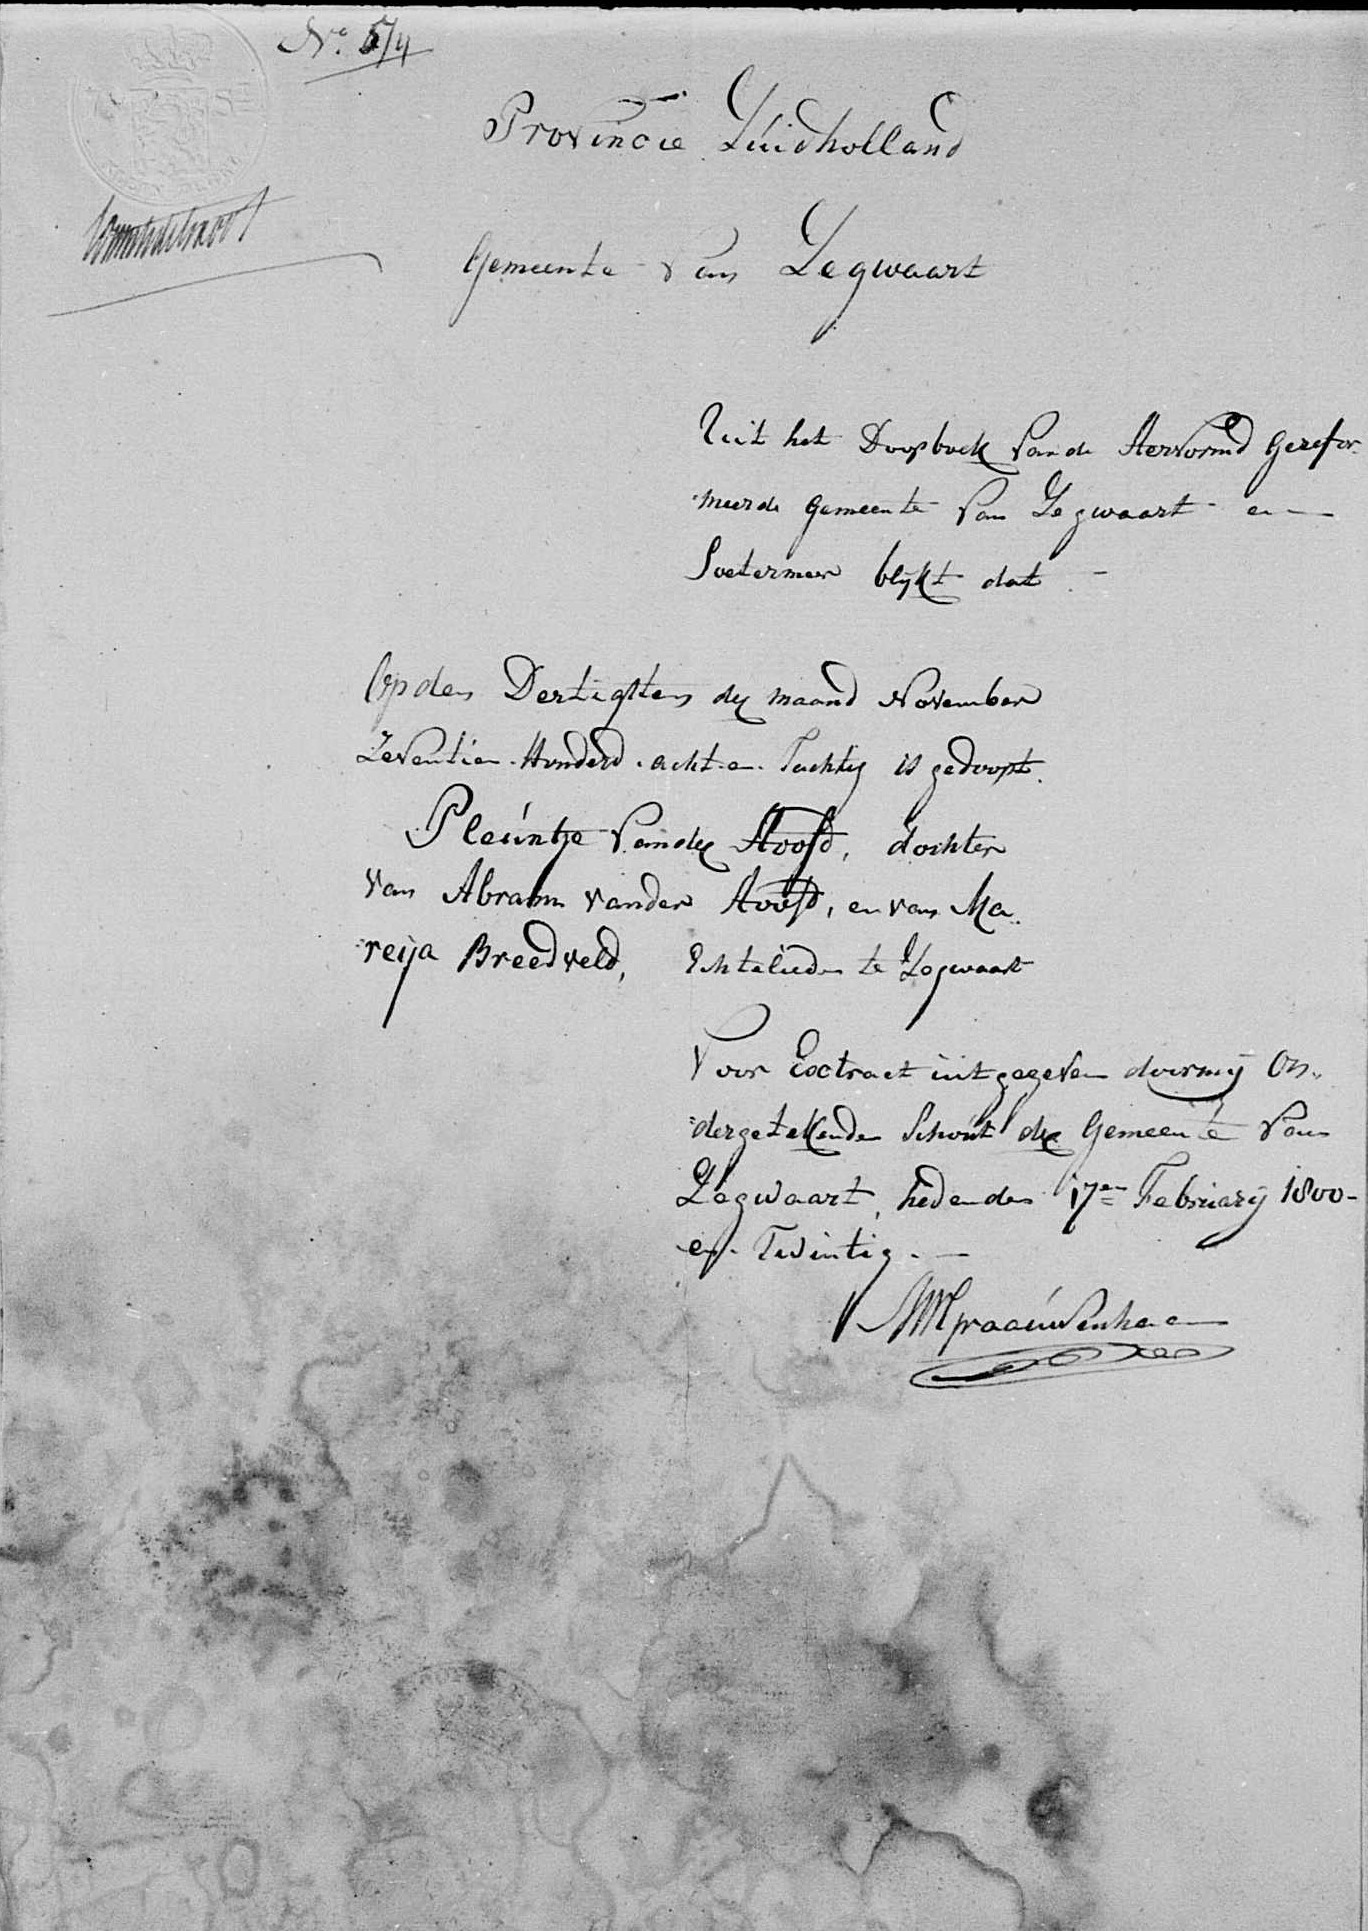 No. 5/4
Provincie Zúidholland
Gemeente van Zegwaart
Uit het Doopboek van de Hervormd Gerefor
meerde gemeente van Zegwaart en
Soetermeer blijkt dat
Op den Dertigsten der maand November
Zeventien Honderd acht en Tachtig is gedoopt.
Pleúntje van der Hoofd, dochter
van Abram van der Hoofd, en van Ma
reija Breedveld, Echtelieden te Zegwaart
Voor Extract uitgegeven door mij On
dergetekende Schout der Gemeente van
Zegwaart, heden den 17en Februarij 1800
en Twintig.